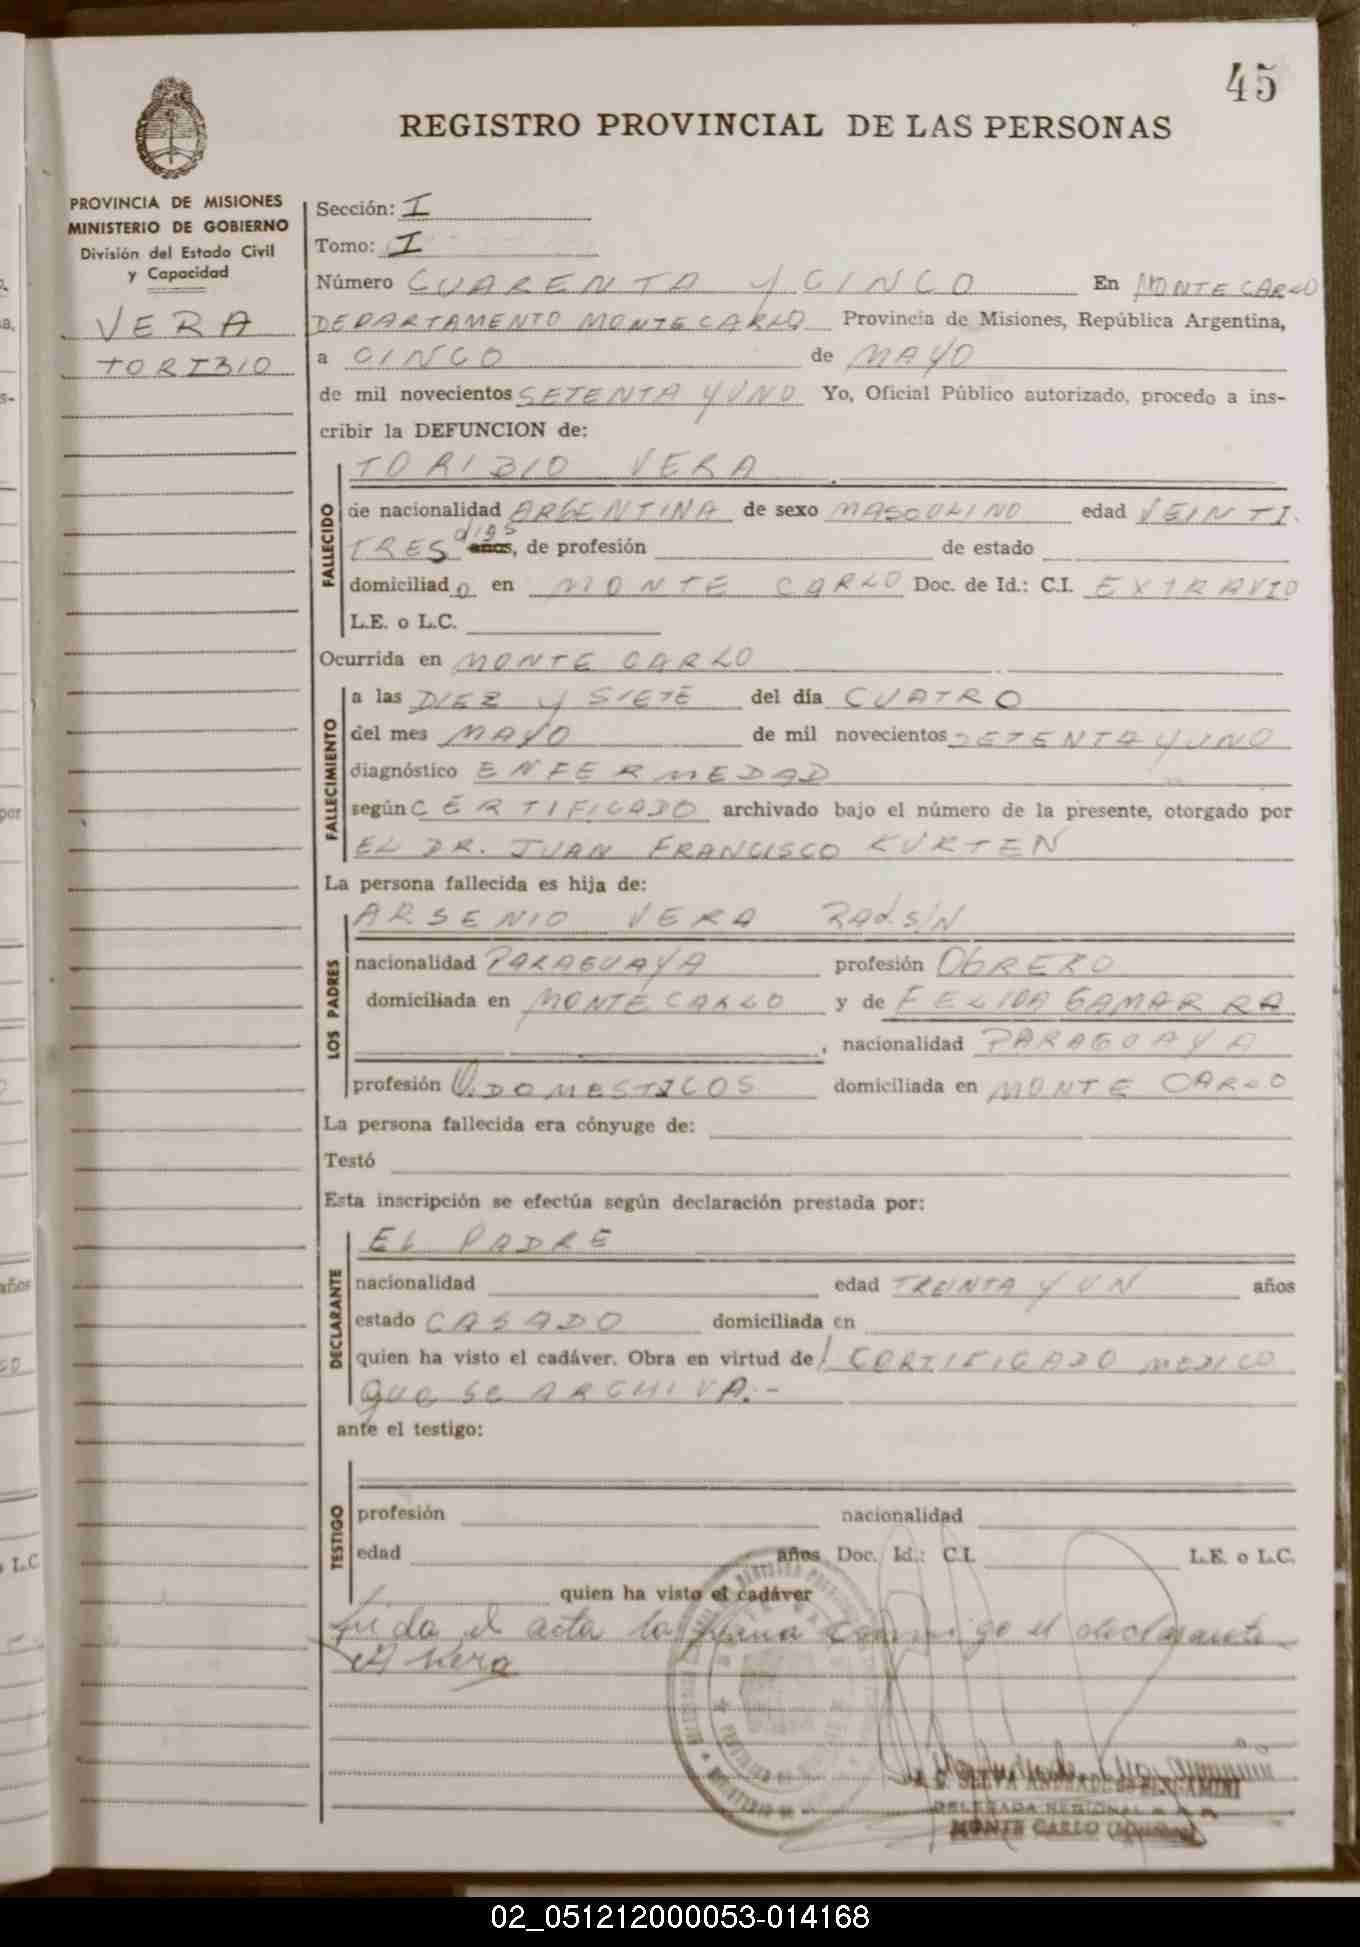 45
REGISTRO PROVINCIAL DE LAS PERSONAS
PROVINCIA DE MISIONES
MINISTERIO DE GOBIERNO
División del Estado Civil
y Capacidad
VERA
TORIBIO
Sección: I
Tomo: I
Número CUARENTA Y CINCO En MONTE CARLO
DEPARTAMENTO MONTECARLO Provincia de Misiones, República Argentina,
a CINCO de MAYO
de mil novecientos SETENTA Y UNO Yo, Oficial Público autorizado, procedo a ins-
cribir la DEFUNCION de:
TORIBIO VERA
FALLECIDO
de nacionalidad ARGENTINA de sexo MASCULINO edad VEINTI
TRES días años, de profesión de estado
domiciliado en MONTE CARLO Doc. de Id.: C.I. EXTRAVIO
L.E. o L.C.
Ocurrida en MONTE CARLO
FALLECIMIENTO
a las DIEZ Y SIETE del día CUATRO
del mes MAYO de mil novecientos SETENTA Y UNO
diagnóstico ENFERMEDAD
según CERTIFICADO archivado bajo el número de la presente, otorgado por
EL DR. JUAN FRANCISCO KURTEN
La persona fallecida es hija de:
LOS PADRES
ARSENIO VERA
nacionalidad PARAGUAYA profesión OBRERO
domiciliada en MONTE CARLO y de FELIDA GAMARRA
, nacionalidad PARAGUAYA
profesión Q. DOMESTICOS domiciliada en MONTE CARLO
La persona fallecida era cónyuge de:
Testó
Esta inscripción se efectúa según declaración prestada por:
DECLARANTE
EL PADRE
nacionalidad edad TREINTA Y UN años
estado CASADO domiciliada en
quien ha visto el cadáver. Obra en virtud de CERTIFICADO MEDICO
QUE SE ARCHIVA.-
ante el testigo:
TESTIGO
profesión nacionalidad
edad años Doc. Id.: C.I. L.E. o L.C.
quien ha visto el cadáver
Leida el acta la firma conmigo el declarante
A Vera
SELVA ANDRADE de BERGAMINI
DELEGADA REGIONAL
MONTE CARLO (Misiones)
02_051212000053-014168